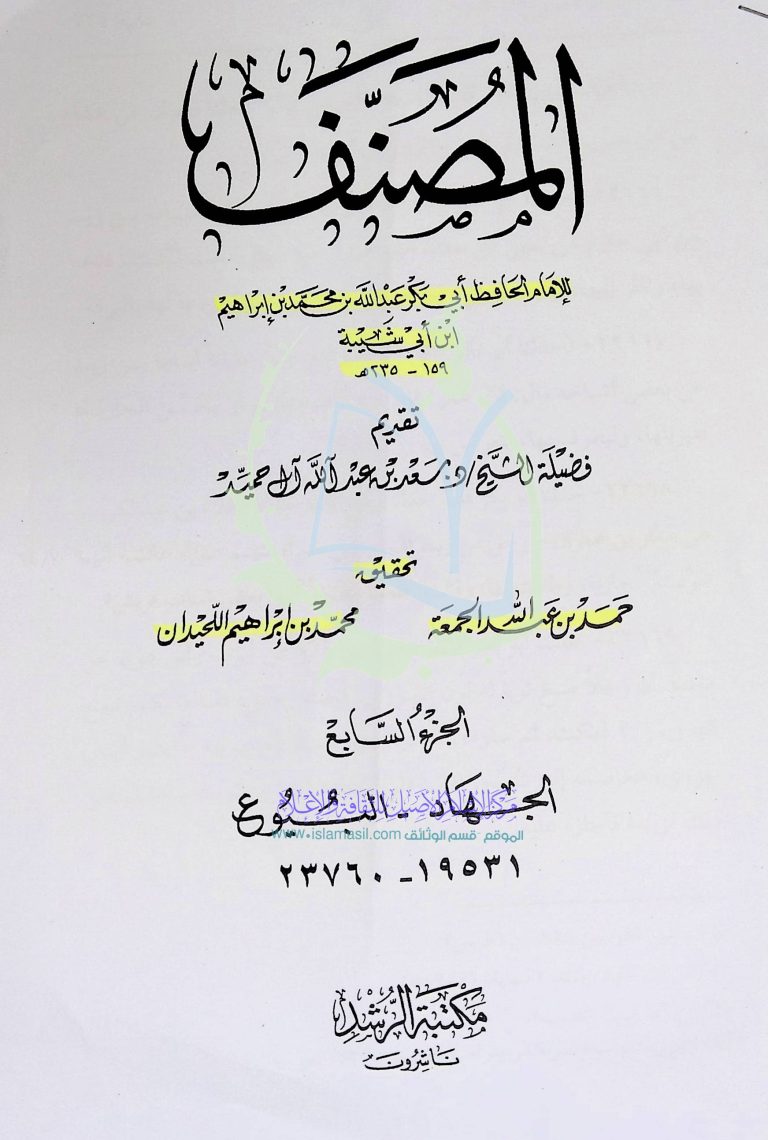 المُصَنَّف
للإمام الحافظ أبي بكر عبد الله بن محمد بن إبراهيم
ابن أبي شيبة
١٥٩ - ٢٣٥ هـ
تقديم
فضيلة الشيخ / د. سعد بن عبد الله آل حميد
تحقيق
حمد بن عبد الله الجمعة    محمد بن إبراهيم اللحيدان
الجزء السابع
الجهاد - البيوع
مركز الإعلام الأصيل للثقافة والإعلام
الموقع - قسم الوثائق www.islamasil.com
١٩٥٣١ - ٢٣٧٦٠
مكتبة الرشد
ناشرون